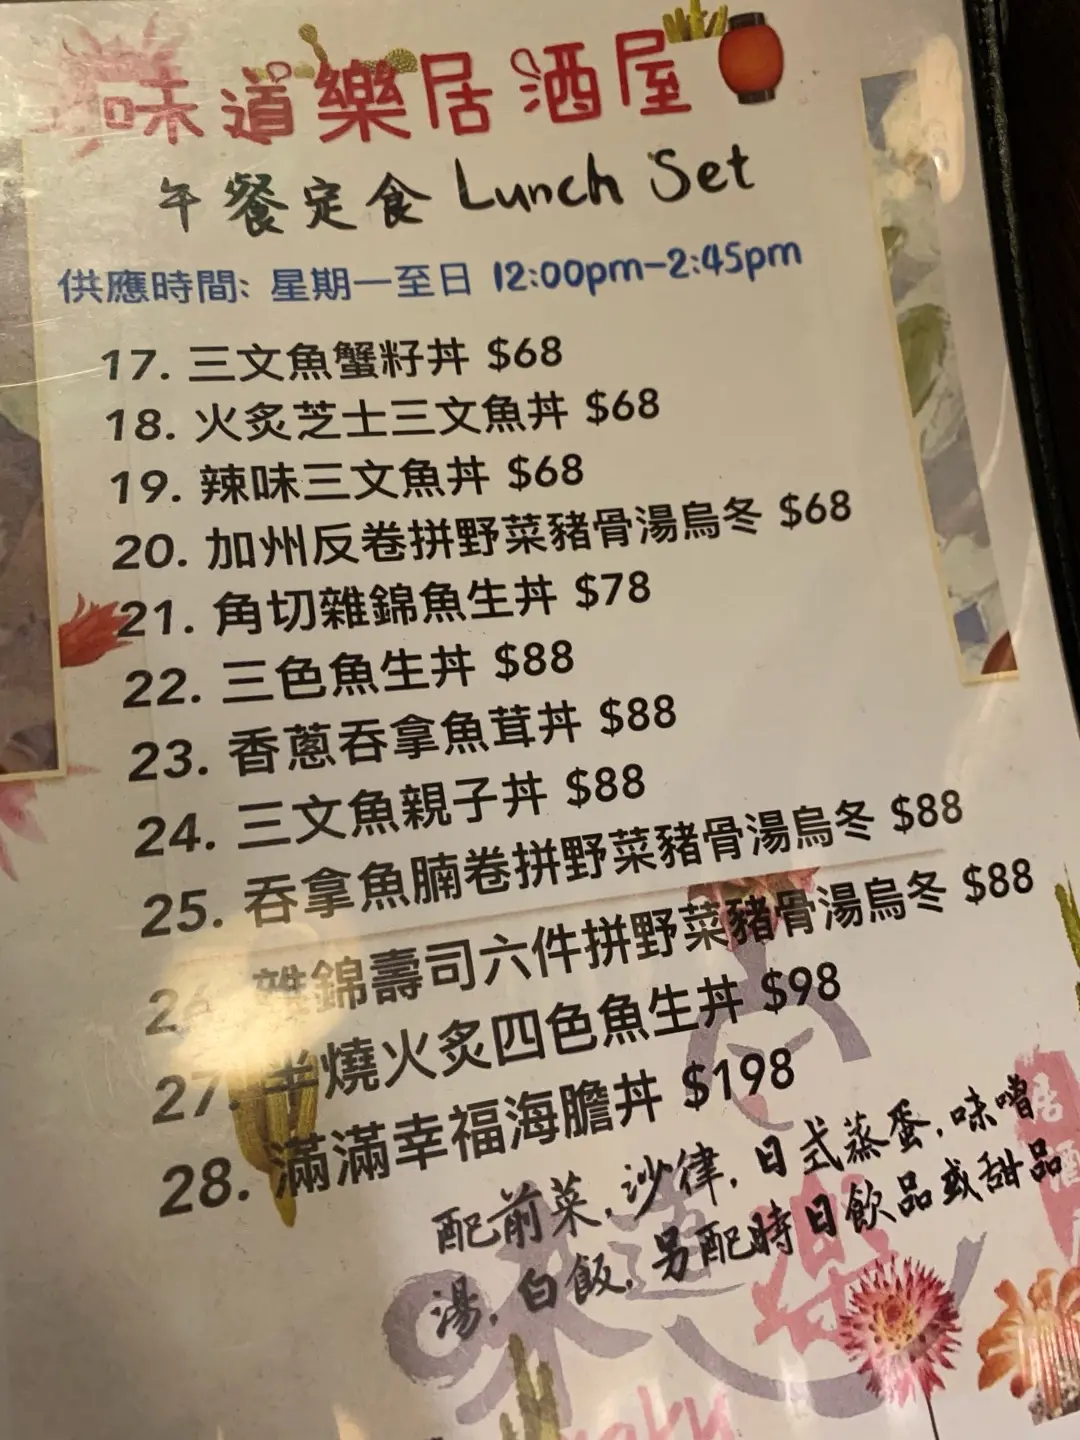 味道樂居酒屋
午餐定食 Lunch Set
供應時間: 星期一至日 12:00pm-2:45pm
17. 三文魚蟹籽丼 $68
18. 火炙芝士三文魚丼 $68
19. 辣味三文魚丼 $68
20. 加州反卷拼野菜豬骨湯烏冬 $68
21. 角切雜錦魚生丼 $78
22. 三色魚生丼 $88
23. 香蔥吞拿魚茸丼 $88
24. 三文魚親子丼 $88
25. 吞拿魚腩卷拼野菜豬骨湯烏冬 $88
26. 雜錦壽司六件拼野菜豬骨湯烏冬 $88
27. 半燒火炙四色魚生丼 $98
28. 滿滿幸福海膽丼 $198
配前菜, 沙律, 日式蒸蛋, 味噌
湯, 白飯, 另配時日飲品或甜品